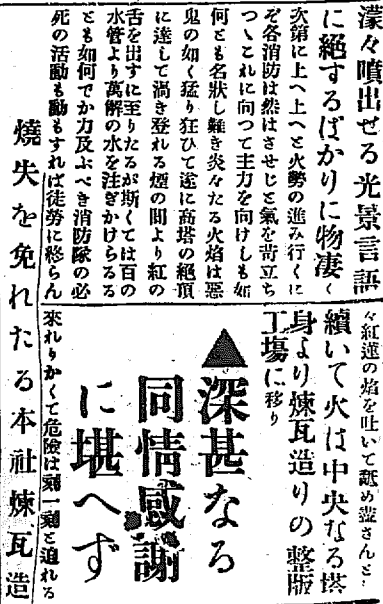 濛々噴出せる光景言語
に絶するばかりに物凄く
次第に上へ上へと火勢の進み行くに
ぞ各消防は然はさせじと氣を苛立ち
つゝこれに向つて主力を向けしも如
何とも名狀し難き炎々たる火焰は惡
鬼の如く猛り狂ひて遂に高塔の絶頂
に達して渦き登れる煙の間より紅の
舌を出すに至りたるが斯くては百の
水管より萬斛の水を注ぎかけらるる
とも如何でか力及ぶべき消防隊の必
死の活動も動もすれば徒勞に終らん
々紅蓮の焰を吐いて舐め盡さんと
續いて火は中央なる塔
身より煉瓦造りの整版
工場に移り
▲深甚なる
同情感謝
に堪へず
來れりかくて危險は刻一刻と迫れる
燒失を免れたる本社煉瓦造